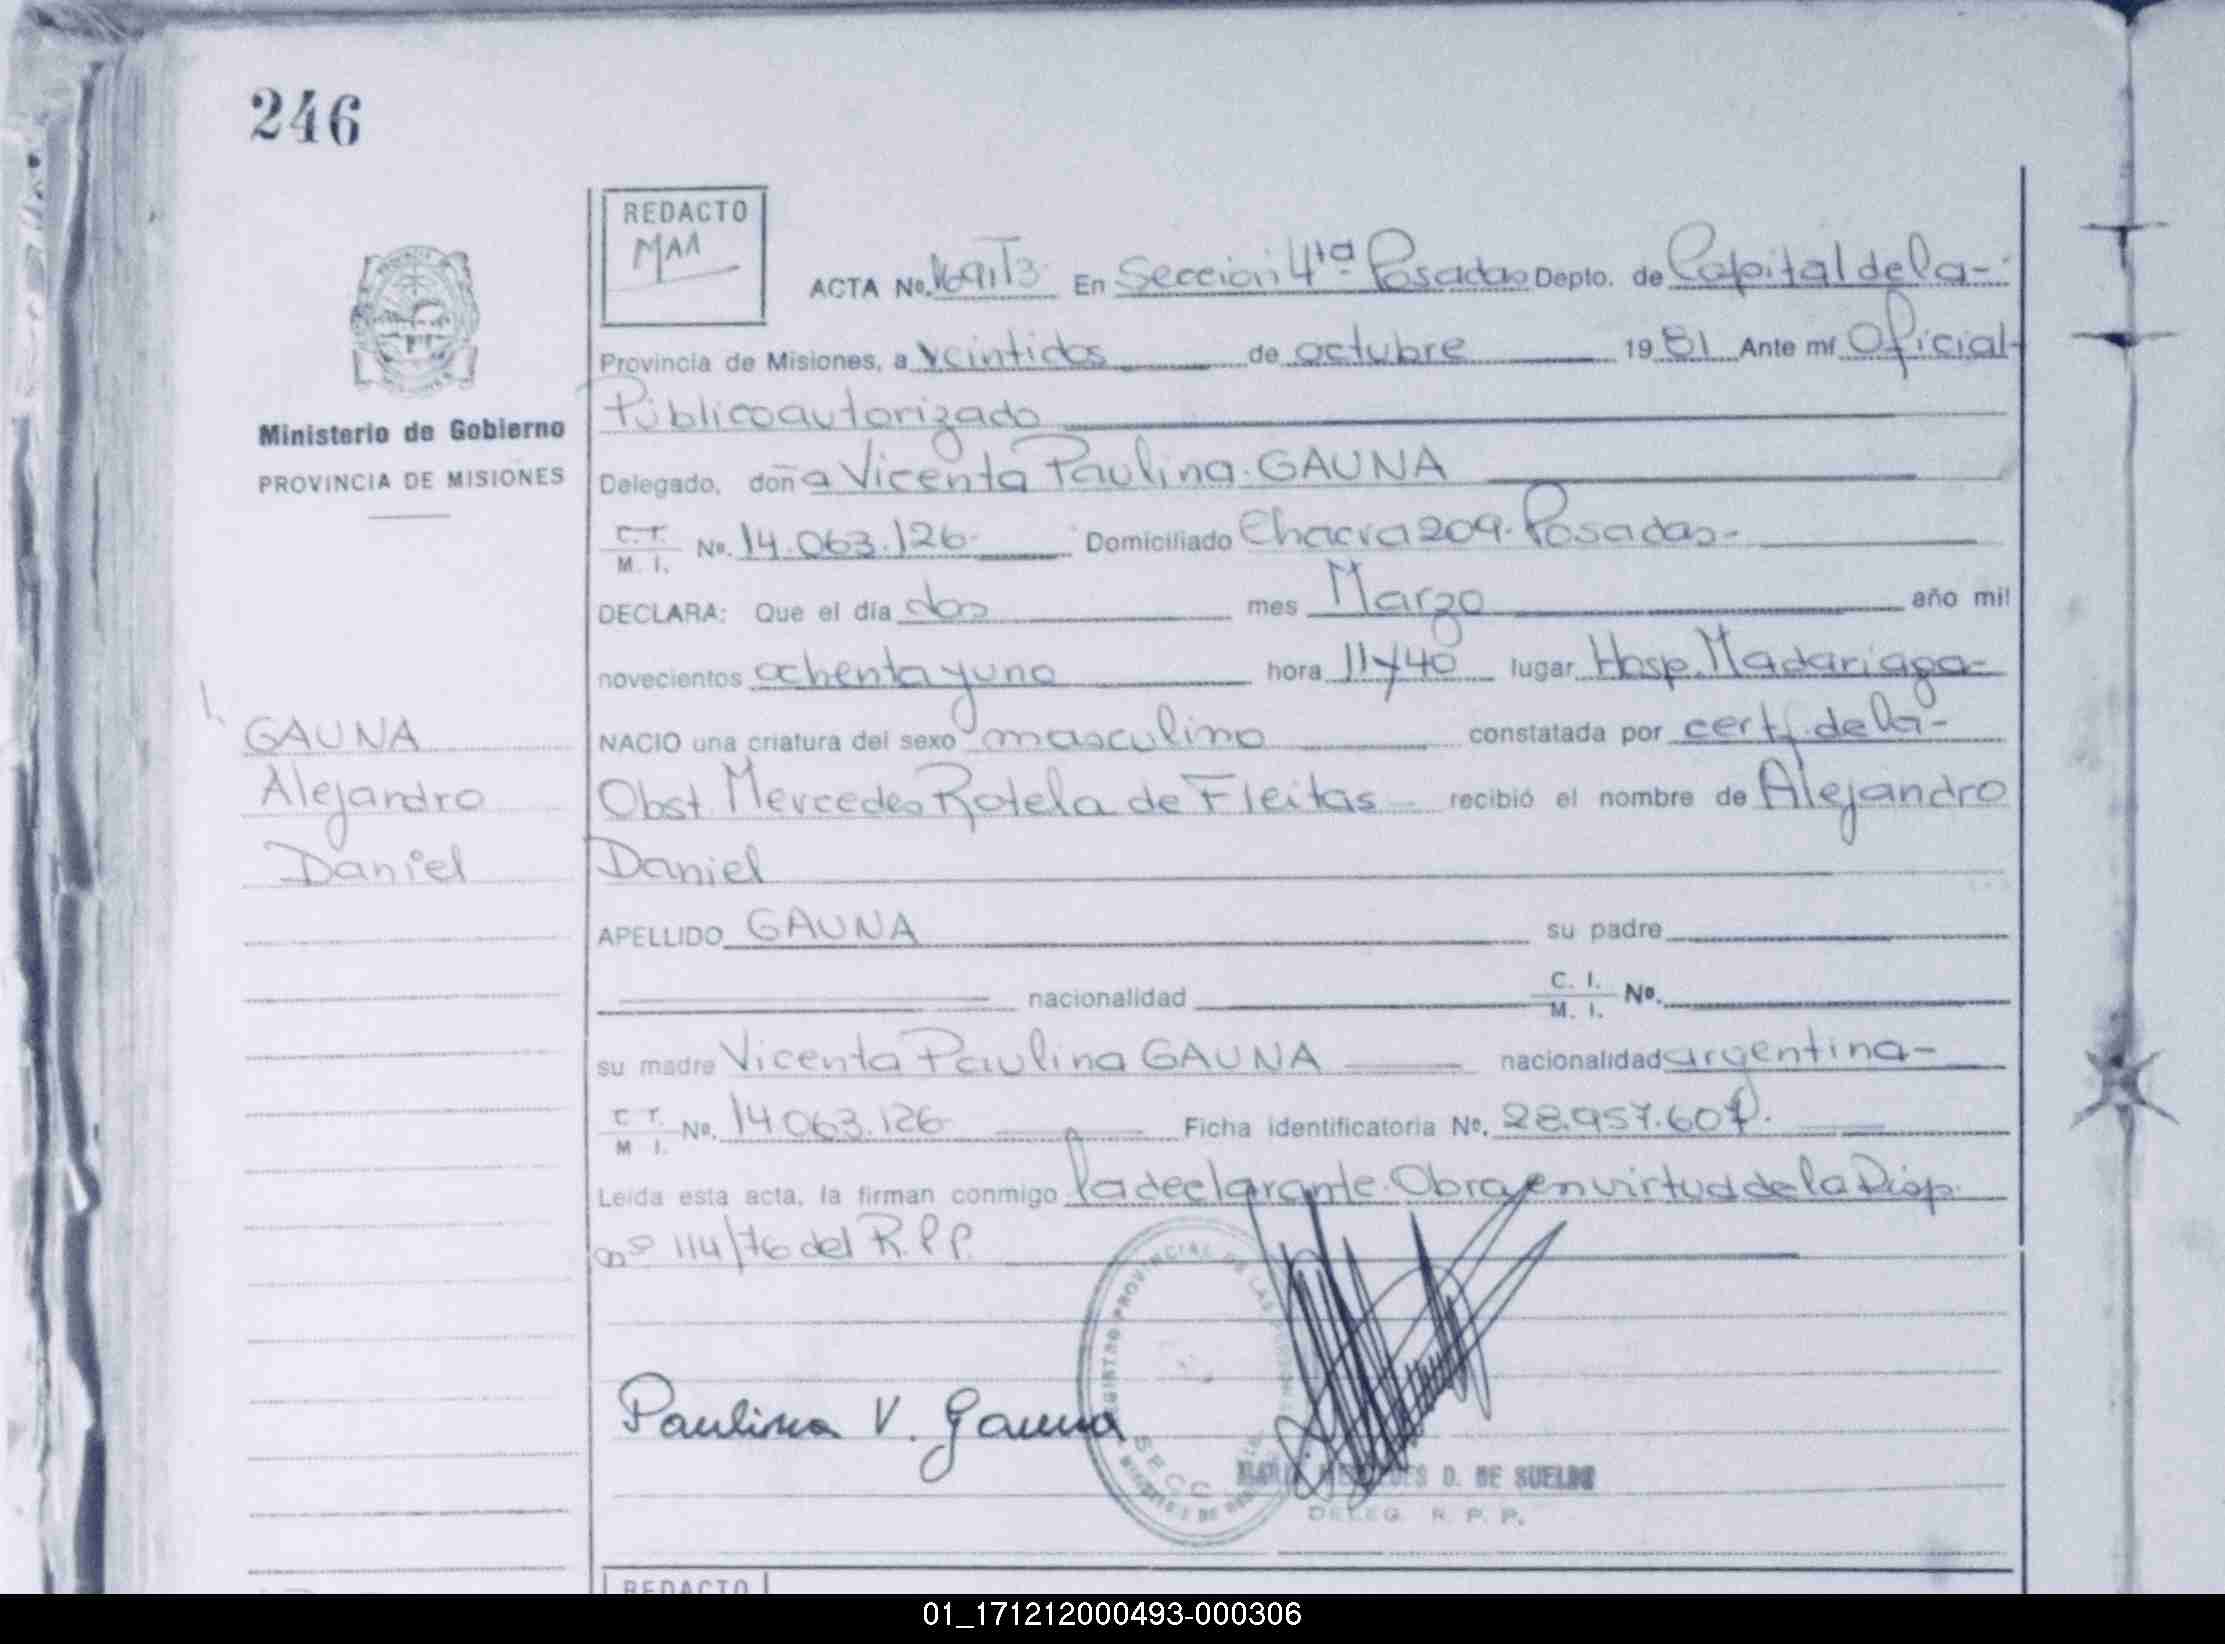 246
REDACTO
MAA
ACTA No. 169.T3 En Sección 4ta Posadas Depto. de Capital de la-
Provincia de Misiones, a veintidos de octubre 1981 Ante mí Oficial
Público autorizado
Ministerio de Gobierno
PROVINCIA DE MISIONES
Delegado, doña Vicenta Paulina GAUNA
C. I.
M. I. No. 14.063.126 Domiciliado Chacra 209. Posadas-
DECLARA: Que el día dos mes Marzo año mil
novecientos ochenta y uno hora 11 y 40 lugar Hosp. Madariaga-
GAUNA
Alejandro
Daniel
NACIO una criatura del sexo masculino constatada por certf. de la-
Obst. Mercedes Rotela de Fleitas recibió el nombre de Alejandro
Daniel
APELLIDO GAUNA su padre
nacionalidad C. I.
M. I. No.
su madre Vicenta Paulina GAUNA nacionalidad argentina-
C. I.
M. I. No. 14.063.126 Ficha identificatoria No. 28.957.607.
Leída esta acta, la firman conmigo la declarante. Obra en virtud de la Disp.
nº 114/76 del R.P.P.
REGISTRO PROVINCIAL DE LAS
SECC
Paulina V. Gauna
D. DE SUELDO
DELEG. R. P. P.
REDACTO
01_171212000493-000306